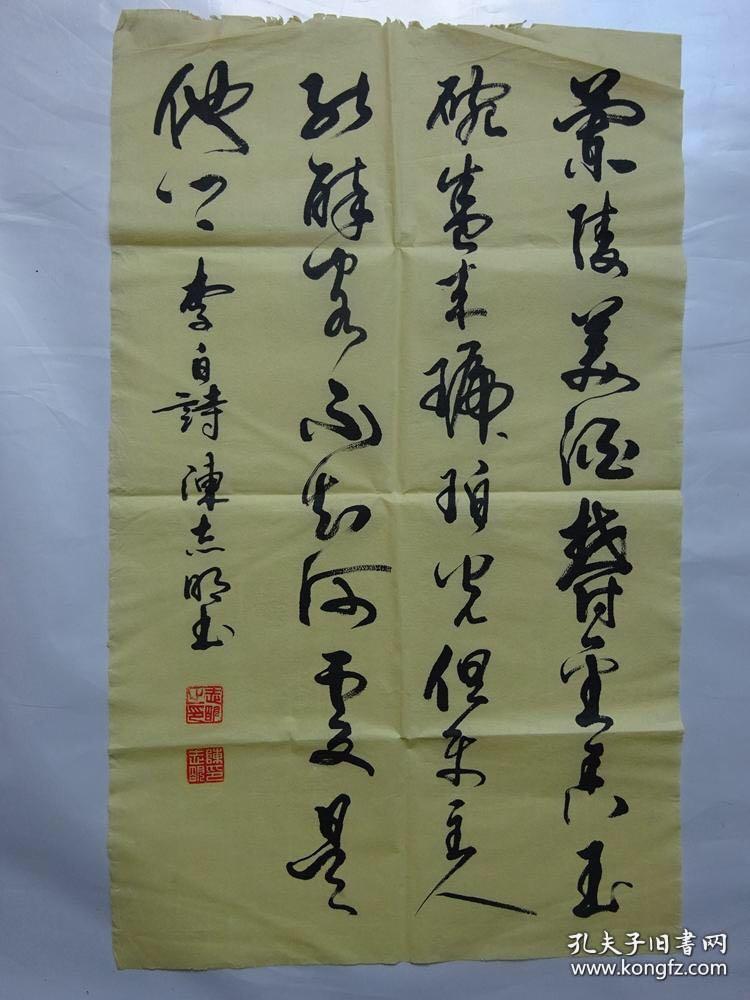 蘭陵美酒欝金香玉
碗盛来琥珀光但使主人
能醉客不知何處是
他鄉 李白詩 陳志明書
志明之印
陳志明印
孔夫子旧書网
www.kongfz.com